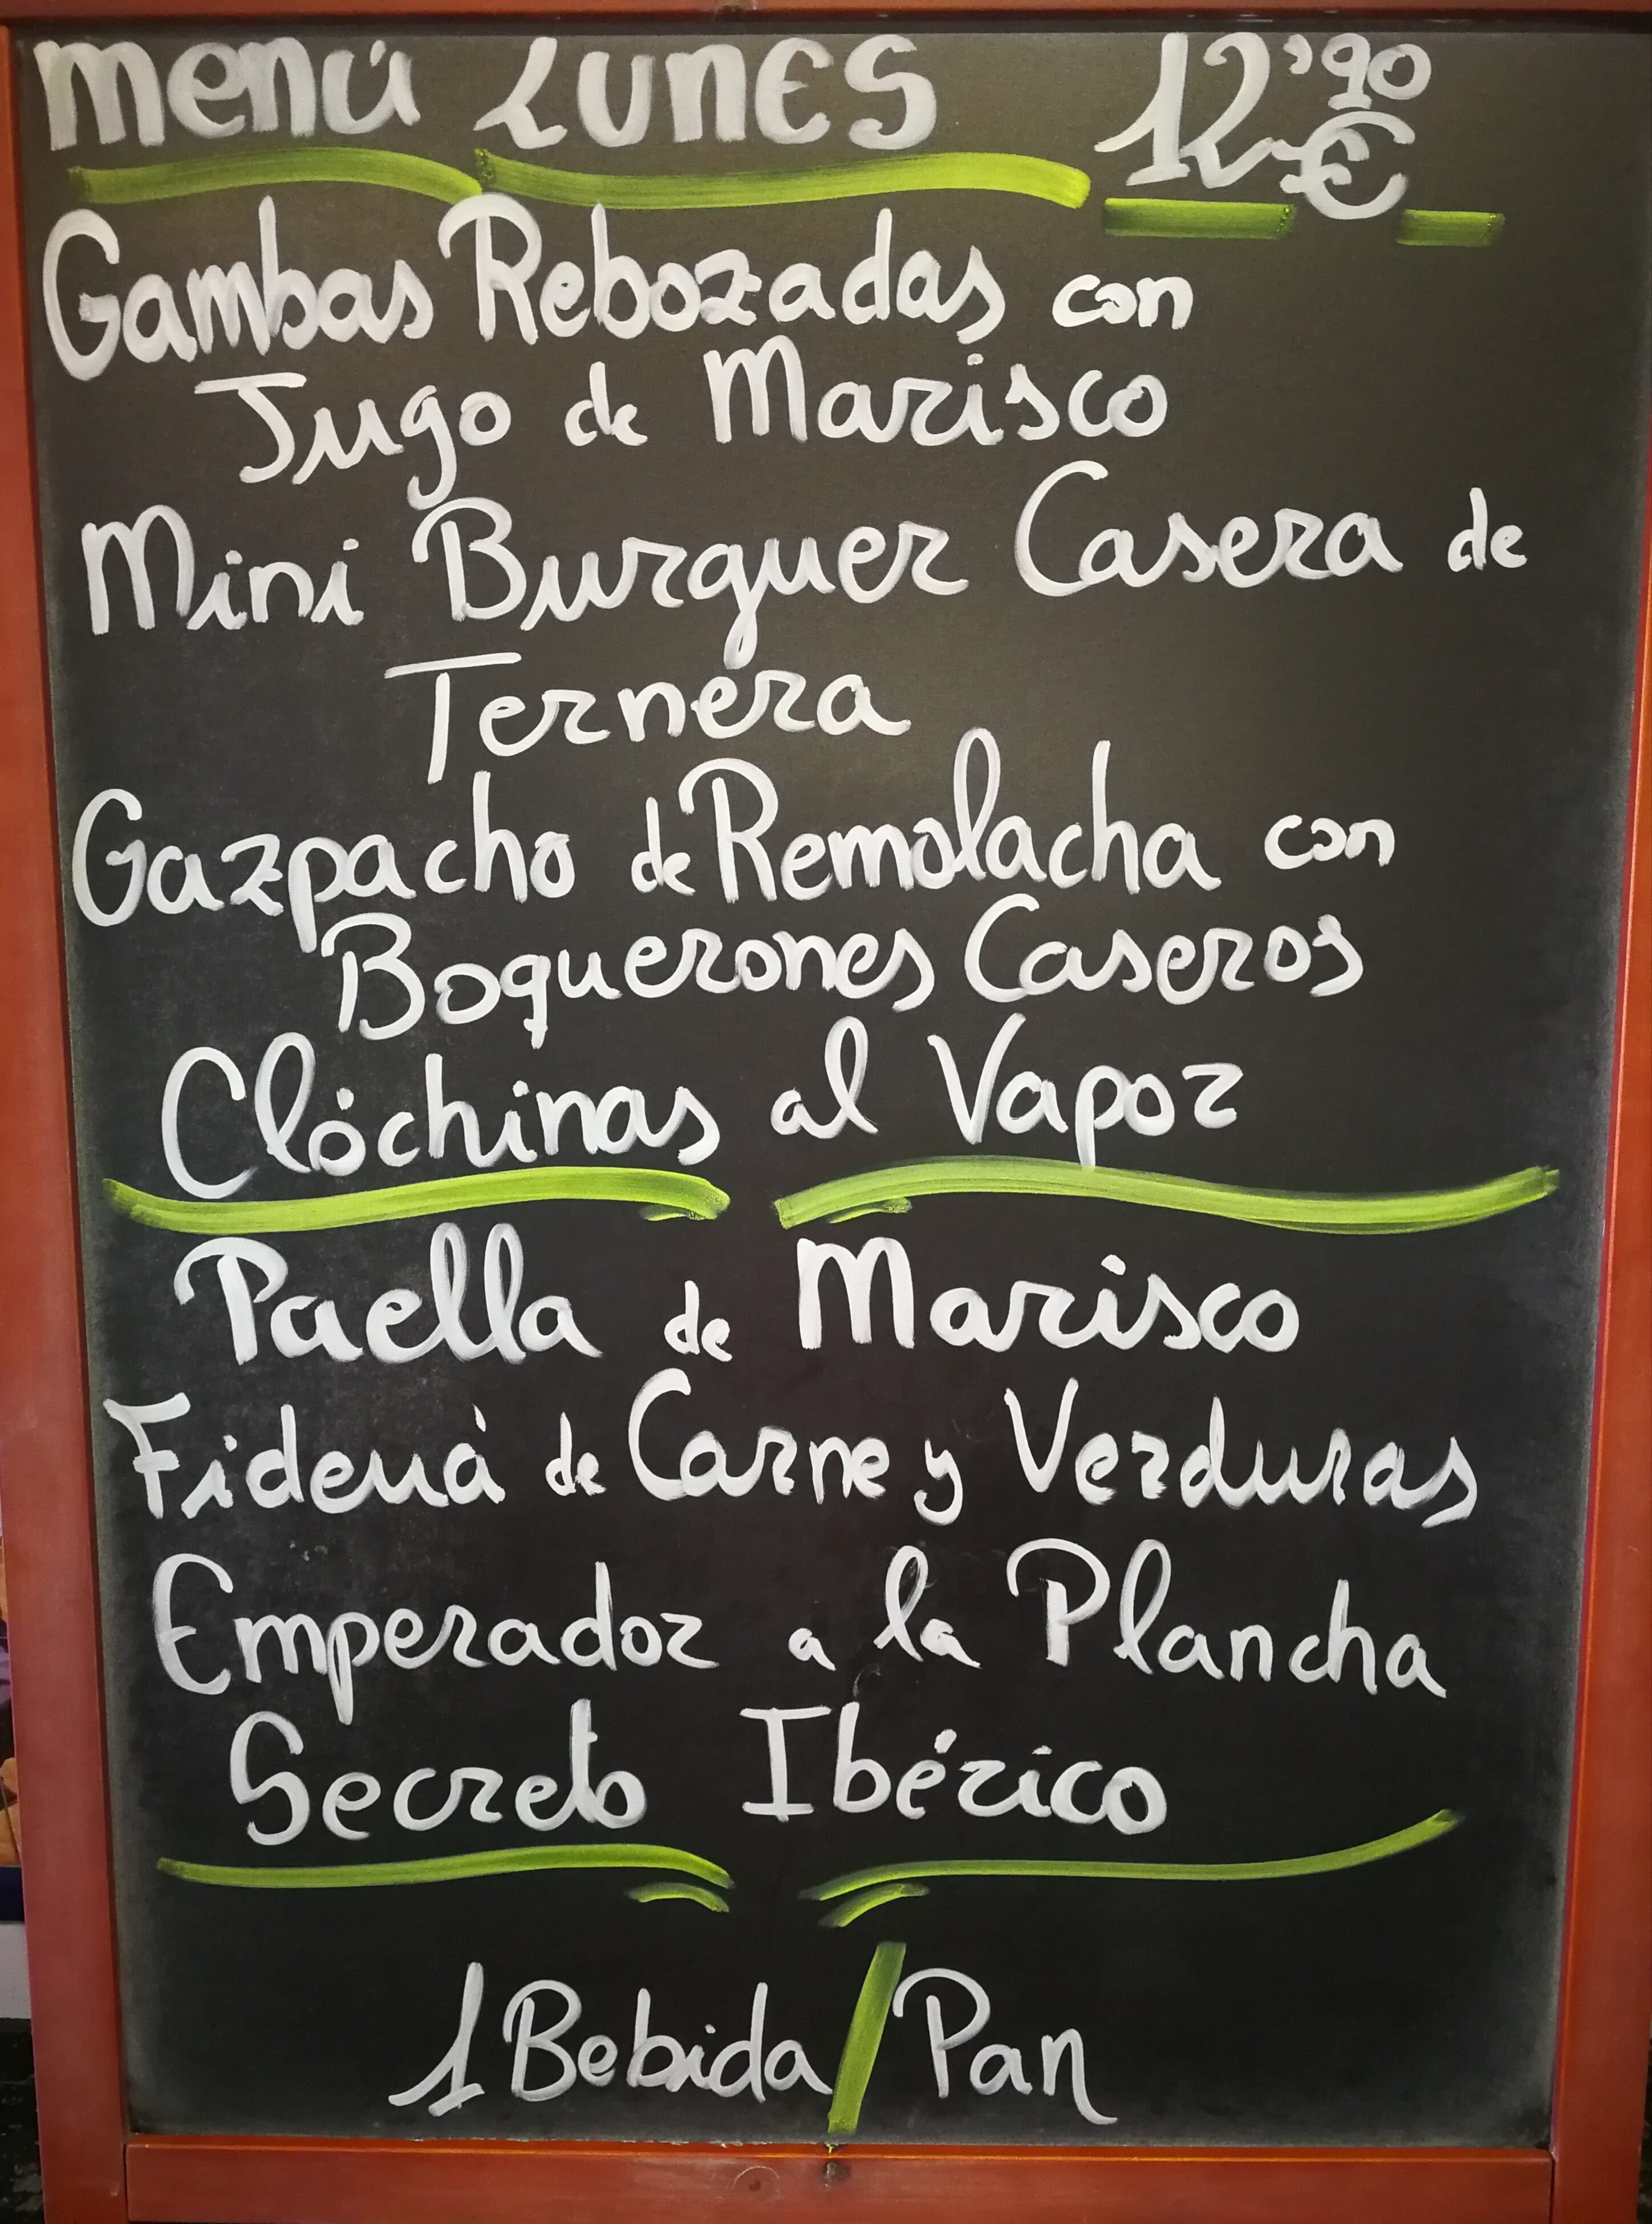 menú LUNES 12'90 €
Gambas Rebozadas con
Jugo de Marisco
Mini Burguer Casera de
Ternera
Gazpacho de Remolacha con
Boquerones Caseros
Clóchinas al Vapor
Paella de Marisco
Fideuà de Carne y Verduras
Emperador a la Plancha
Secreto Ibérico
1 Bebida/Pan